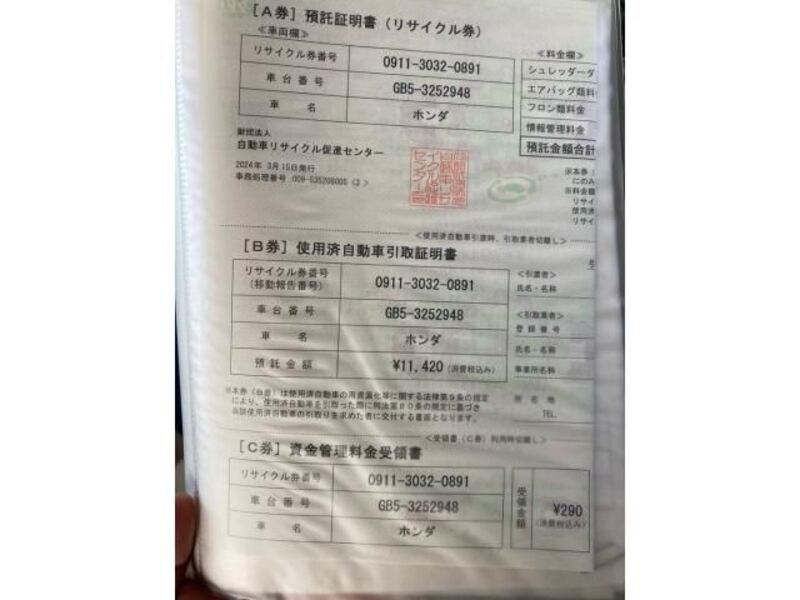 [A券] 預託証明書(リサイクル券)
≪車両欄≫
リサイクル券番号 0911-3032-0891
車台番号 GB5-3252948
車名 ホンダ
≪料金欄≫
シュレッダーダ
エアバッグ類料金
フロン類料金
情報管理料金
預託金額合計
財団法人
自動車リサイクル促進センター
2024年 3月15日発行
※本券
にのみ
※料金額
リサイ
使用済
リサイ
<使用済自動車引渡時、引取業者切離し>
[B券] 使用済自動車引取証明書
リサイクル券番号
(移動報告番号) 0911-3032-0891
車台番号 GB5-3252948
車名 ホンダ
預託金額 ¥11,420 (消費税込み)
<引渡者>
氏名・名称
<引取業者>
登録番号
氏名・名称
事業所名称
所在地
TEL.
※本券(B券)は使用済自動車の再資源化等に関する法律第9条の規定
により、使用済自動車を引取った際に同法第80条の規定に基づき
当該使用済自動車の引取りを求めた者に交付する書面となります。
<受領書(C券)利用時切離し>
[C券] 資金管理料金受領書
リサイクル券番号 0911-3032-0891
車台番号 GB5-3252948
車名 ホンダ
受領金額 ¥290
(消費税込み)